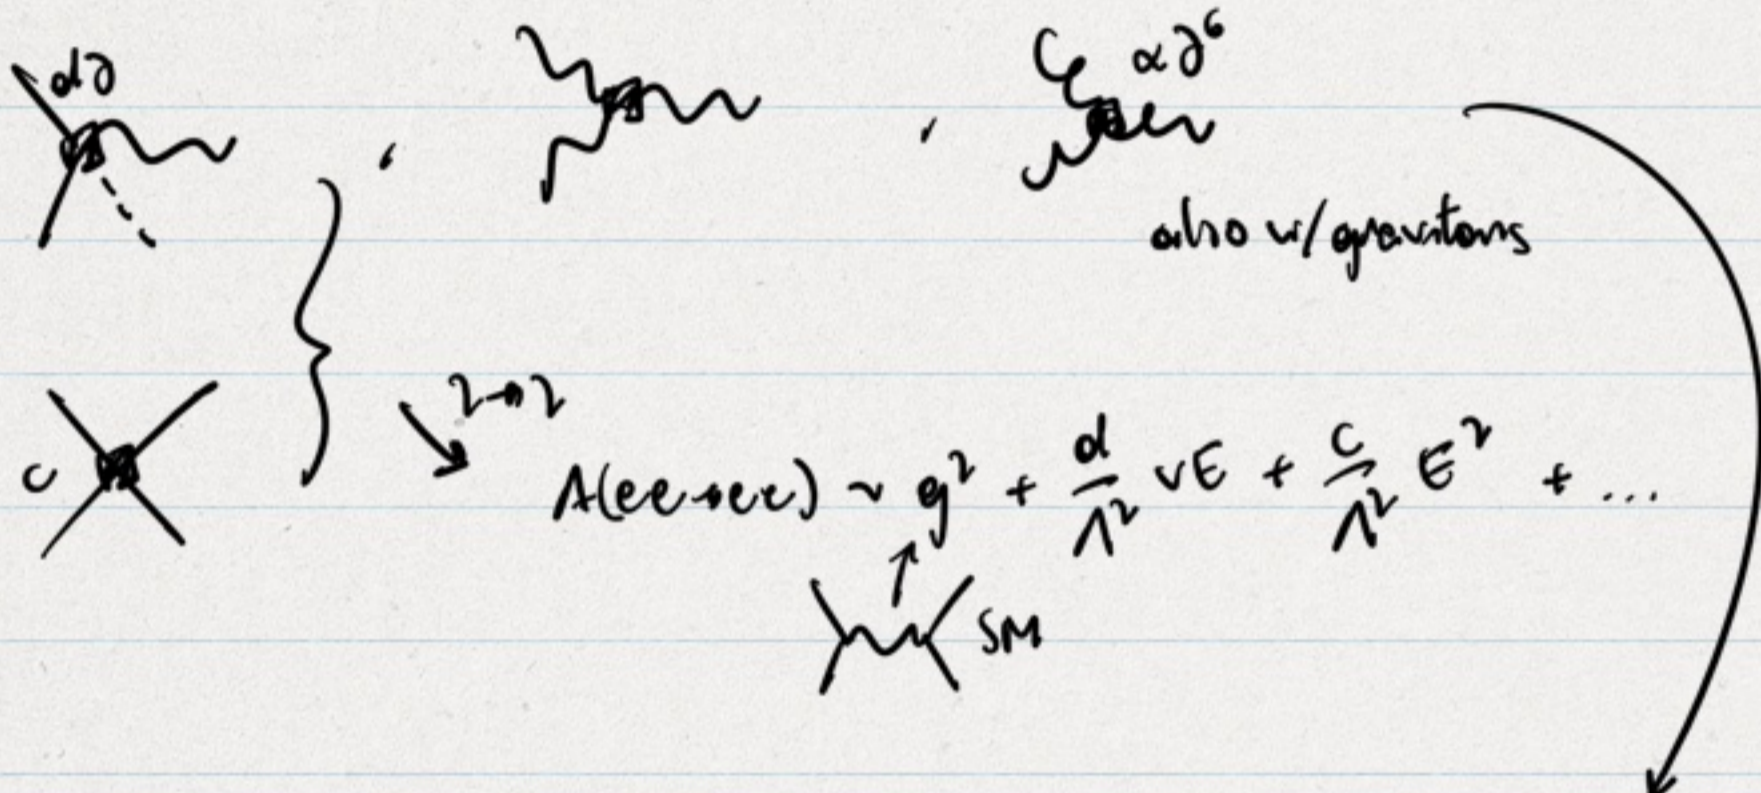 d∂
α∂⁶
also w/ gravitons
c
2→2
A(ee→ee) ~ g² + d/Λ² vE + c/Λ² E² + ...
SM